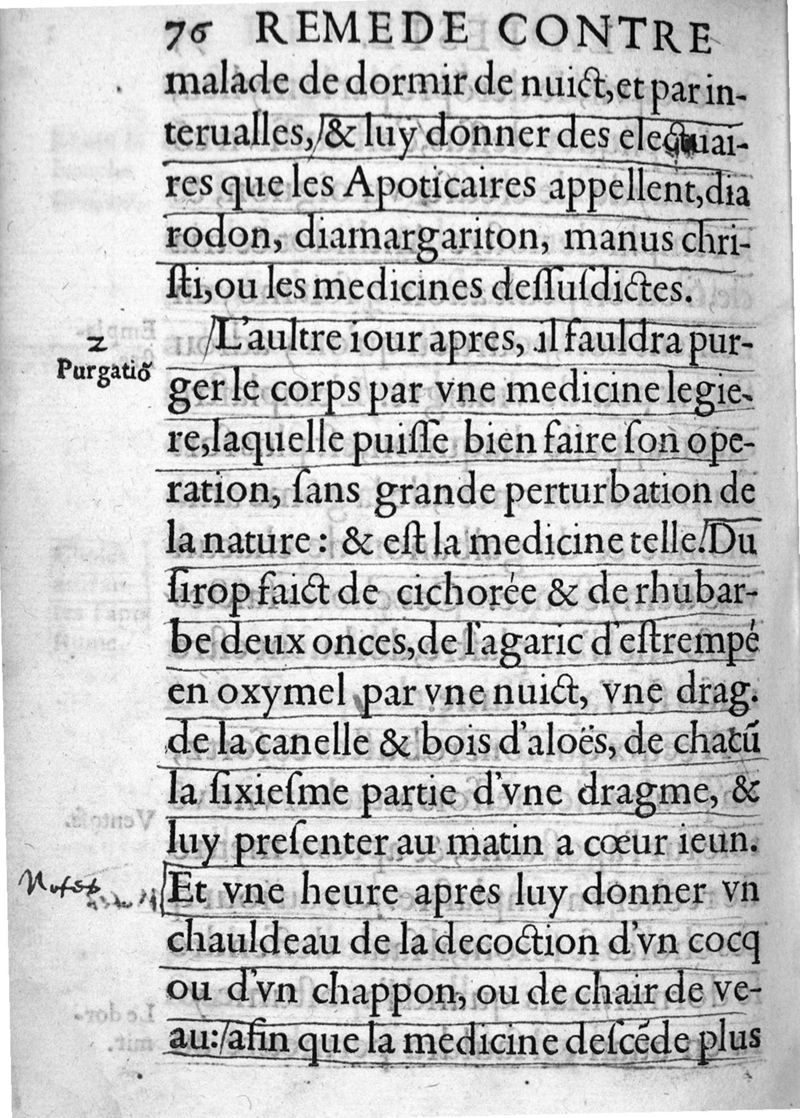 76 REMEDE CONTRE
malade de dormir de nuict, et par in-
terualles, & luy donner des electuai-
res que les Apoticaires appellent, dia
rodon, diamargariton, manus chri-
ſti, ou les medicines deſſuſdictes.
L'aultre iour apres, il fauldra pur-
2
Purgatiõ
ger le corps par vne medicine legie-
re, laquelle puiſſe bien faire ſon ope-
ration, ſans grande perturbation de
la nature : & eſt la medicine telle. Du
ſirop faict de cichorée & de rhubar-
be deux onces, de l'agaric d'eſtrempé
en oxymel par vne nuict, vne drag.
de la canelle & bois d'aloës, de chacũ
la ſixieſme partie d'vne dragme, &
luy preſenter au matin a cœur ieun.
Et vne heure apres luy donner vn
chauldeau de la decoction d'vn cocq
ou d'vn chappon, ou de chair de ve-
au: afin que la medicine deſcẽde plus